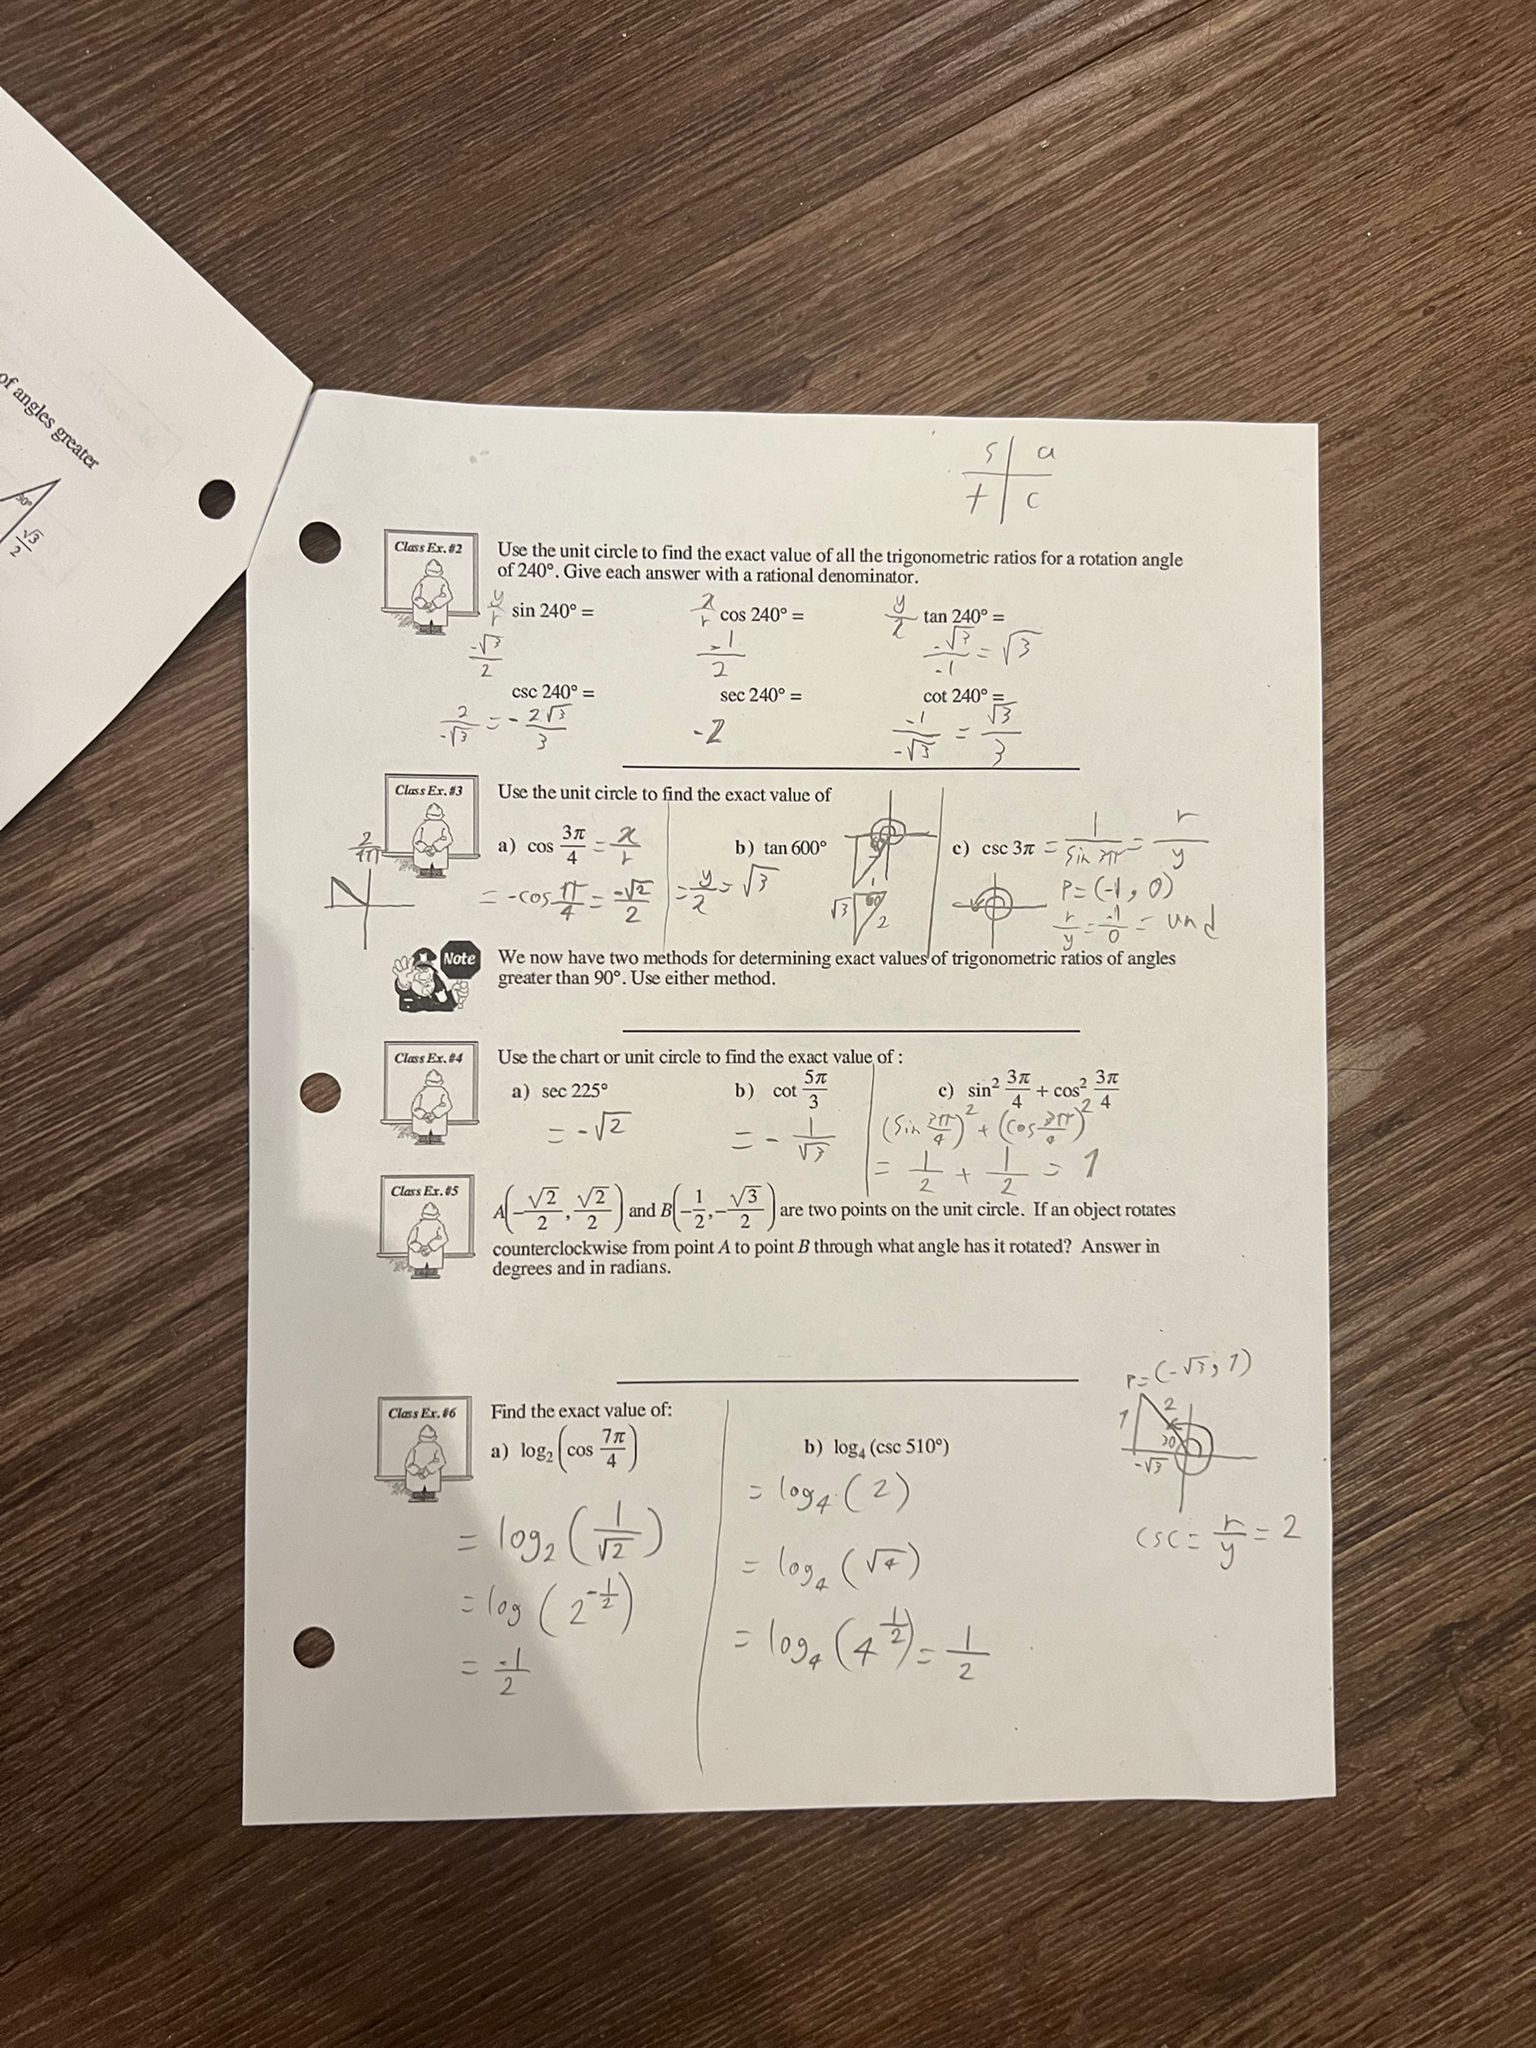 of angles greater
30°
√3/2
s | a
t | c
Class Ex. #2
Use the unit circle to find the exact value of all the trigonometric ratios for a rotation angle
of 240°. Give each answer with a rational denominator.
y/r sin 240° = x/r cos 240° = y/x tan 240° =
-√3/2 -1/2 -√3/-1 = √3
csc 240° = sec 240° = cot 240° =
2/-√3 = - 2√3/3 -2 -1/-√3 = √3/3
Class Ex. #3
Use the unit circle to find the exact value of
a) cos 3π/4 = x/r b) tan 600° c) csc 3π = 1/sin 3π = r/y
= -cos π/4 = -√2/2 = y/x = √3 √3 1 60 2 P = (-1, 0)
r/y = -1/0 = und
Note
We now have two methods for determining exact values of trigonometric ratios of angles
greater than 90°. Use either method.
Class Ex. #4
Use the chart or unit circle to find the exact value of :
a) sec 225° b) cot 5π/3 c) sin² 3π/4 + cos² 3π/4
= -√2 = - 1/√3 (sin 3π/4)² + (cos 3π/4)²
= 1/2 + 1/2 = 1
Class Ex. #5
A(-√2/2, √2/2) and B(-1/2, -√3/2) are two points on the unit circle. If an object rotates
counterclockwise from point A to point B through what angle has it rotated? Answer in
degrees and in radians.
P = (-√3, 1)
1 2 30 -√3
csc = r/y = 2
Class Ex. #6
Find the exact value of:
a) log₂(cos 7π/4) b) log₄ (csc 510°)
= log₂ (1/√2) = log₄ (2)
= log (2^-1/2) = log₄ (√4)
= -1/2 = log₄ (4^1/2) = 1/2